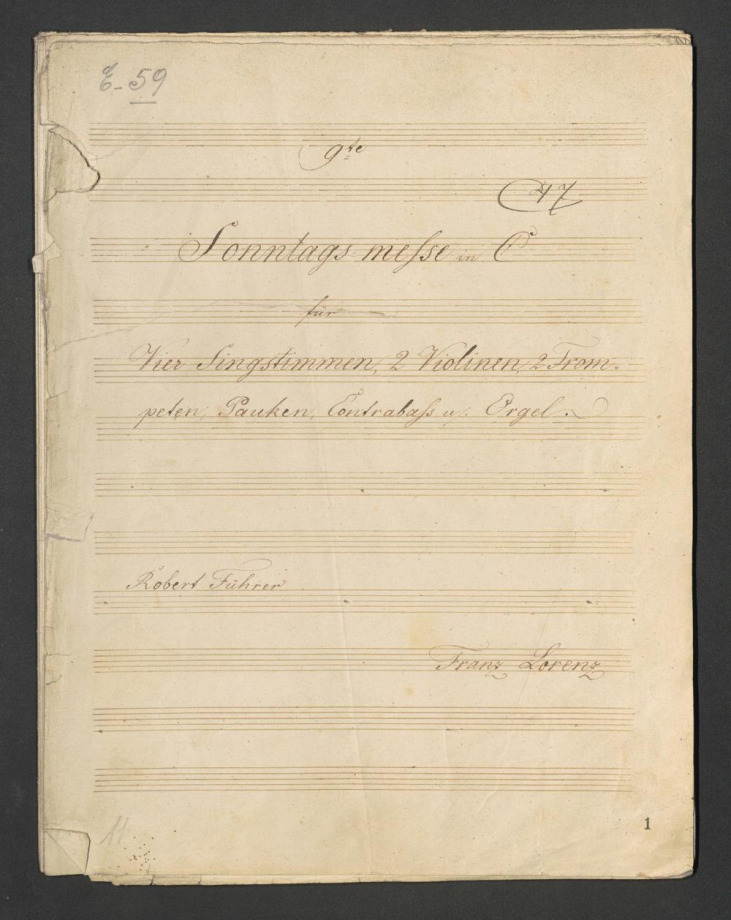 E-59
9te
47
Sonntags-meſse in C
für
Vier Singstimmen, 2 Violinen, 2 Trom-
peten, Pauken, Contrabaſs u. Orgel.
Robert Führer
Franz Lorenz
11
1